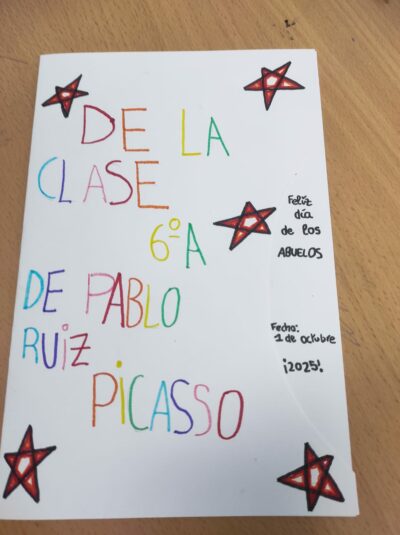 DE LA
CLASE
6ºA
DE PABLO
RUiZ
PiCASSO
Felíz
día
de los
ABUELOS
Fecha:
1 de octubre
¡2025!